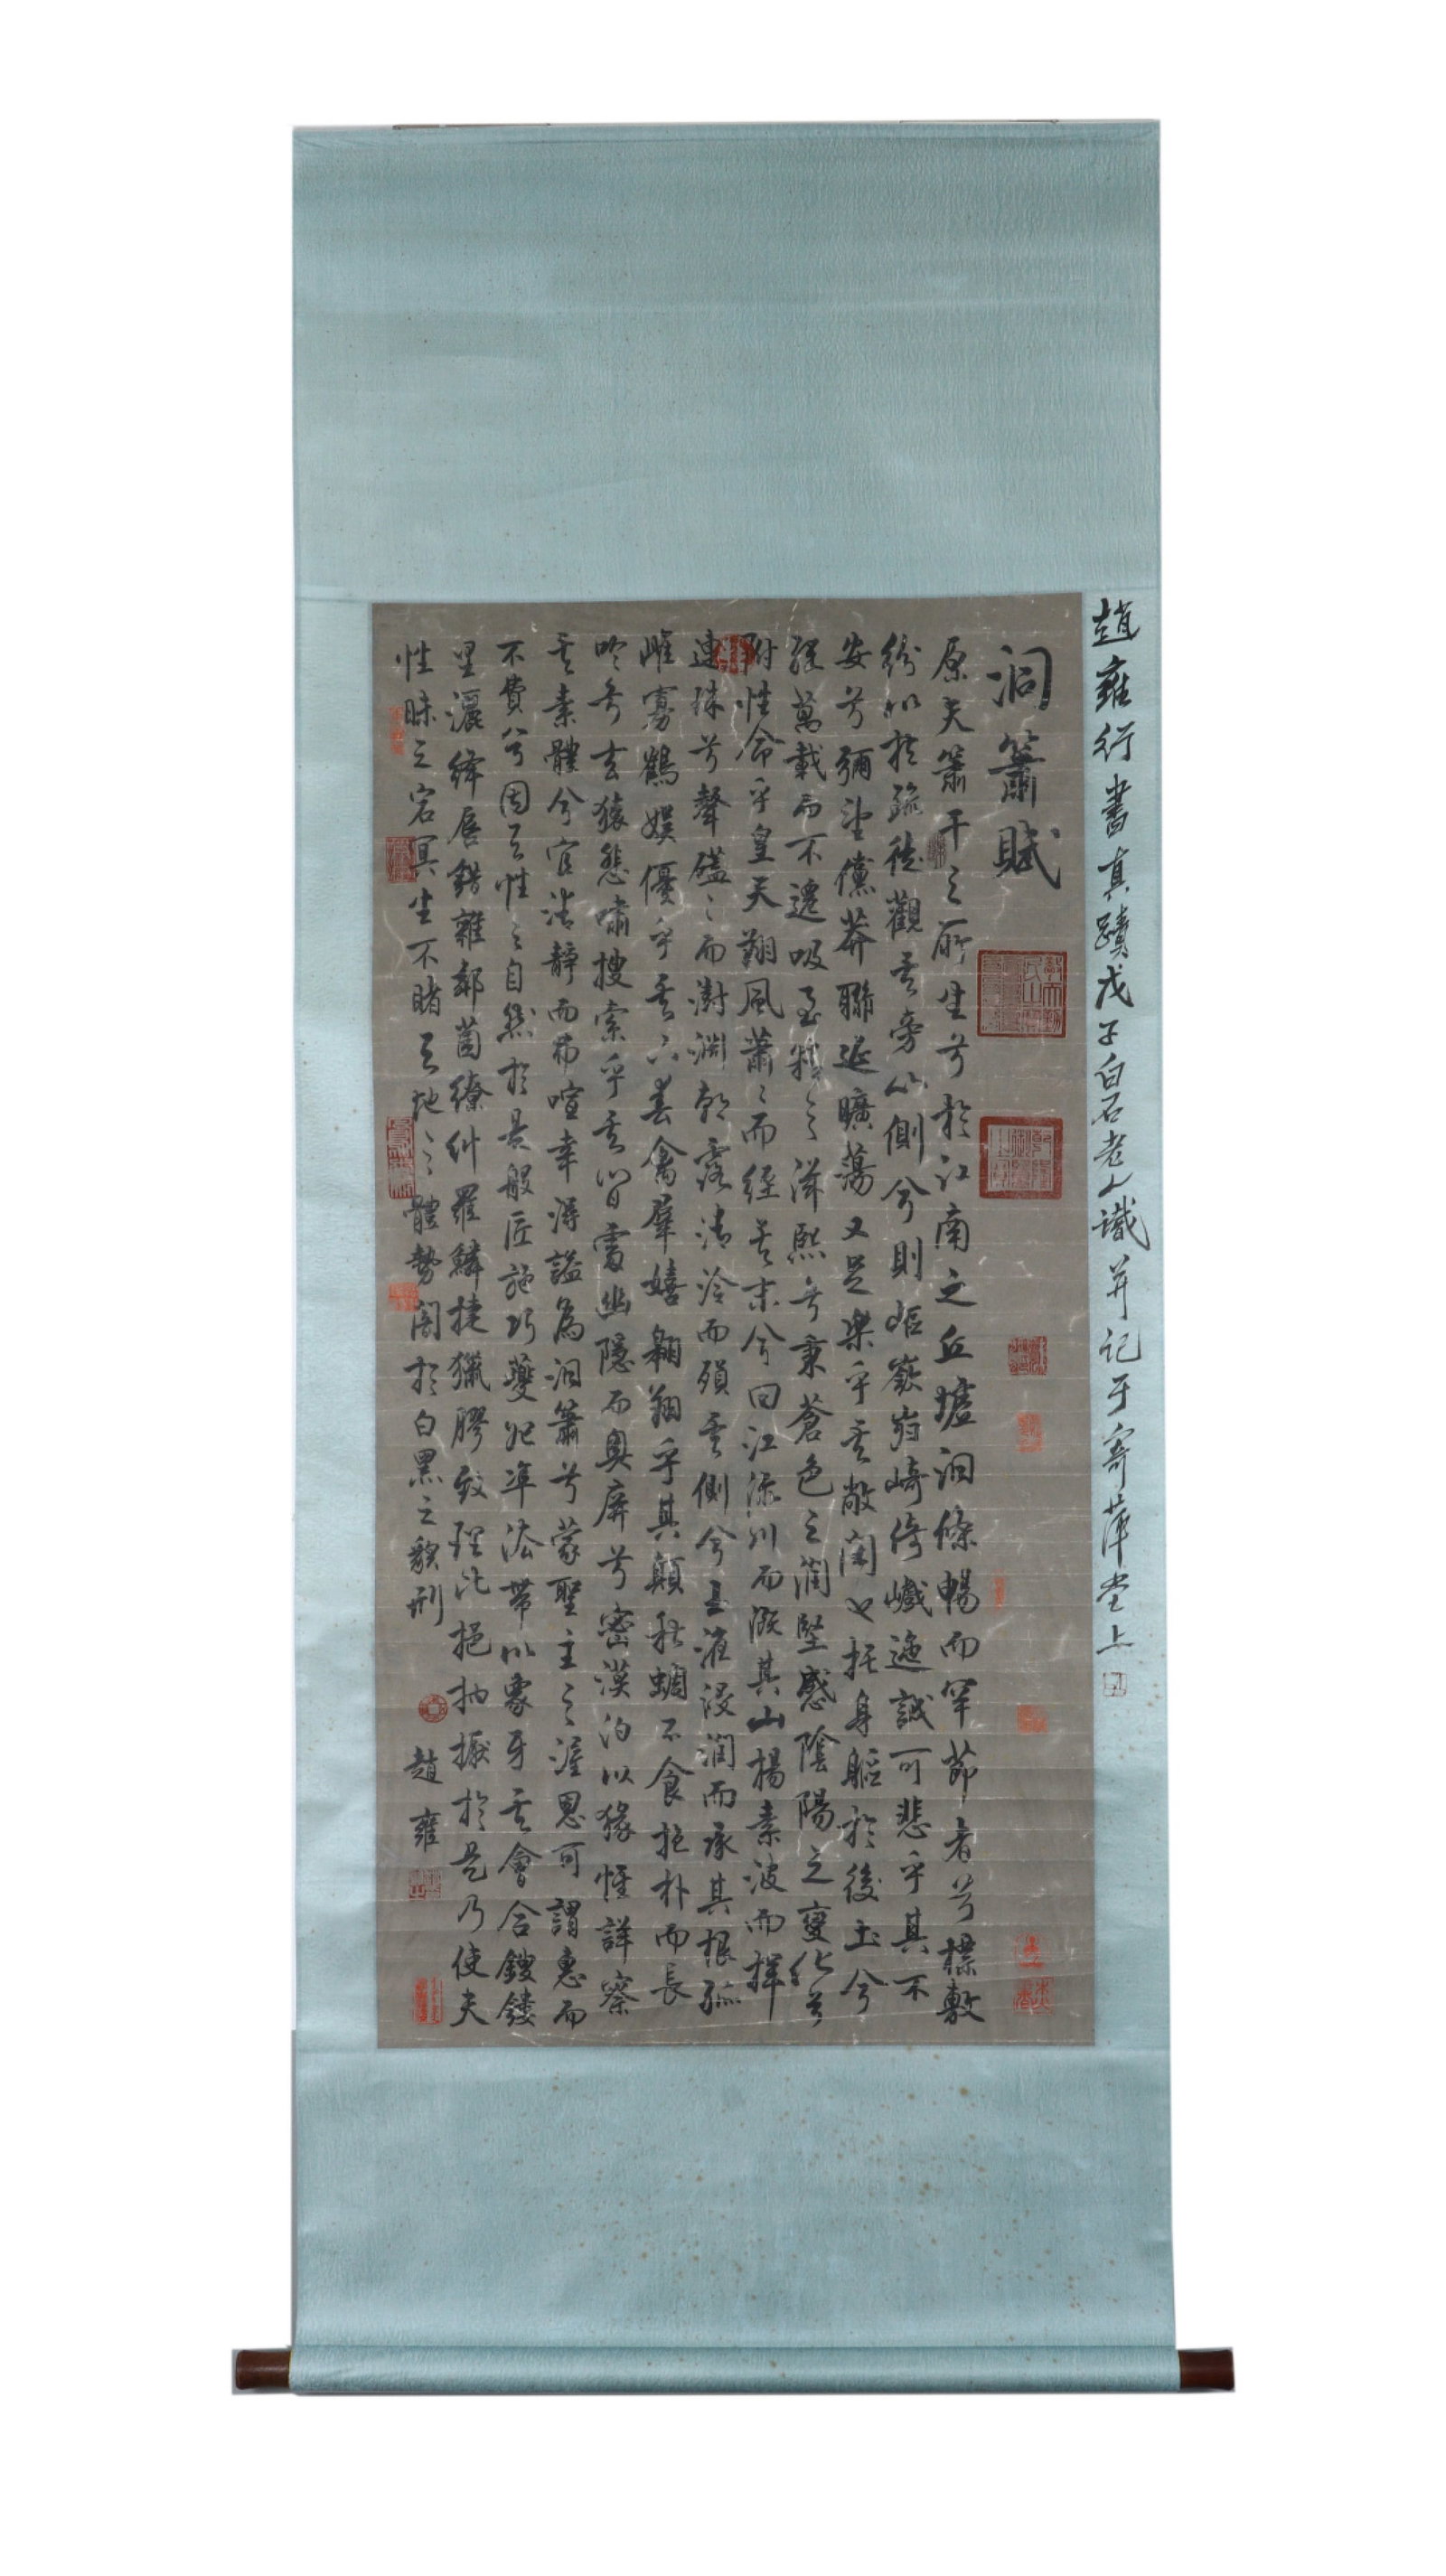 趙雍行書真蹟戊子白石老人識并記于寄萍堂上
洞簫賦
原夫簫干之所生兮於江南之丘墟洞條暢而罕節兮標敷
紛以扶疏徒觀其旁山側兮則嶇嶔巋崎倚巇迤誠可悲乎其不
安兮彌望儻莽聯延曠蕩又足樂乎其敞閑也托身軀於後土兮
經萬載而不遷吸至精之滋熙兮秉蒼色之潤堅感陰陽之變化兮
附性命乎皇天翔風蕭〻而經其末兮回江流川而溉其山揚素波而揮
連珠兮聲礚〻而澍淵朝露清泠而隕其側兮玉液浸潤而承其根孤
雌寡鶴娛優乎其下兮春禽群嬉翱翔乎其顛秋蜩不食抱朴而長
吟兮玄猿悲嘯搜索乎其間處幽隱而奧屏兮密漠泊以猭惟詳察
其素體兮宜清靜而弗喧幸得謚為洞簫兮蒙聖主之渥恩可謂惠而
不費兮因天性之自然於是般匠施巧夔妃准法帶以象牙其會合鎪鏤
里灑絳唇錯雜鄰菌繚糾羅鱗捷獵膠致理比挹抐擫於是乃使夫
性昧之宕冥生不睹天地之體勢闇於白黑之貌形
趙雍